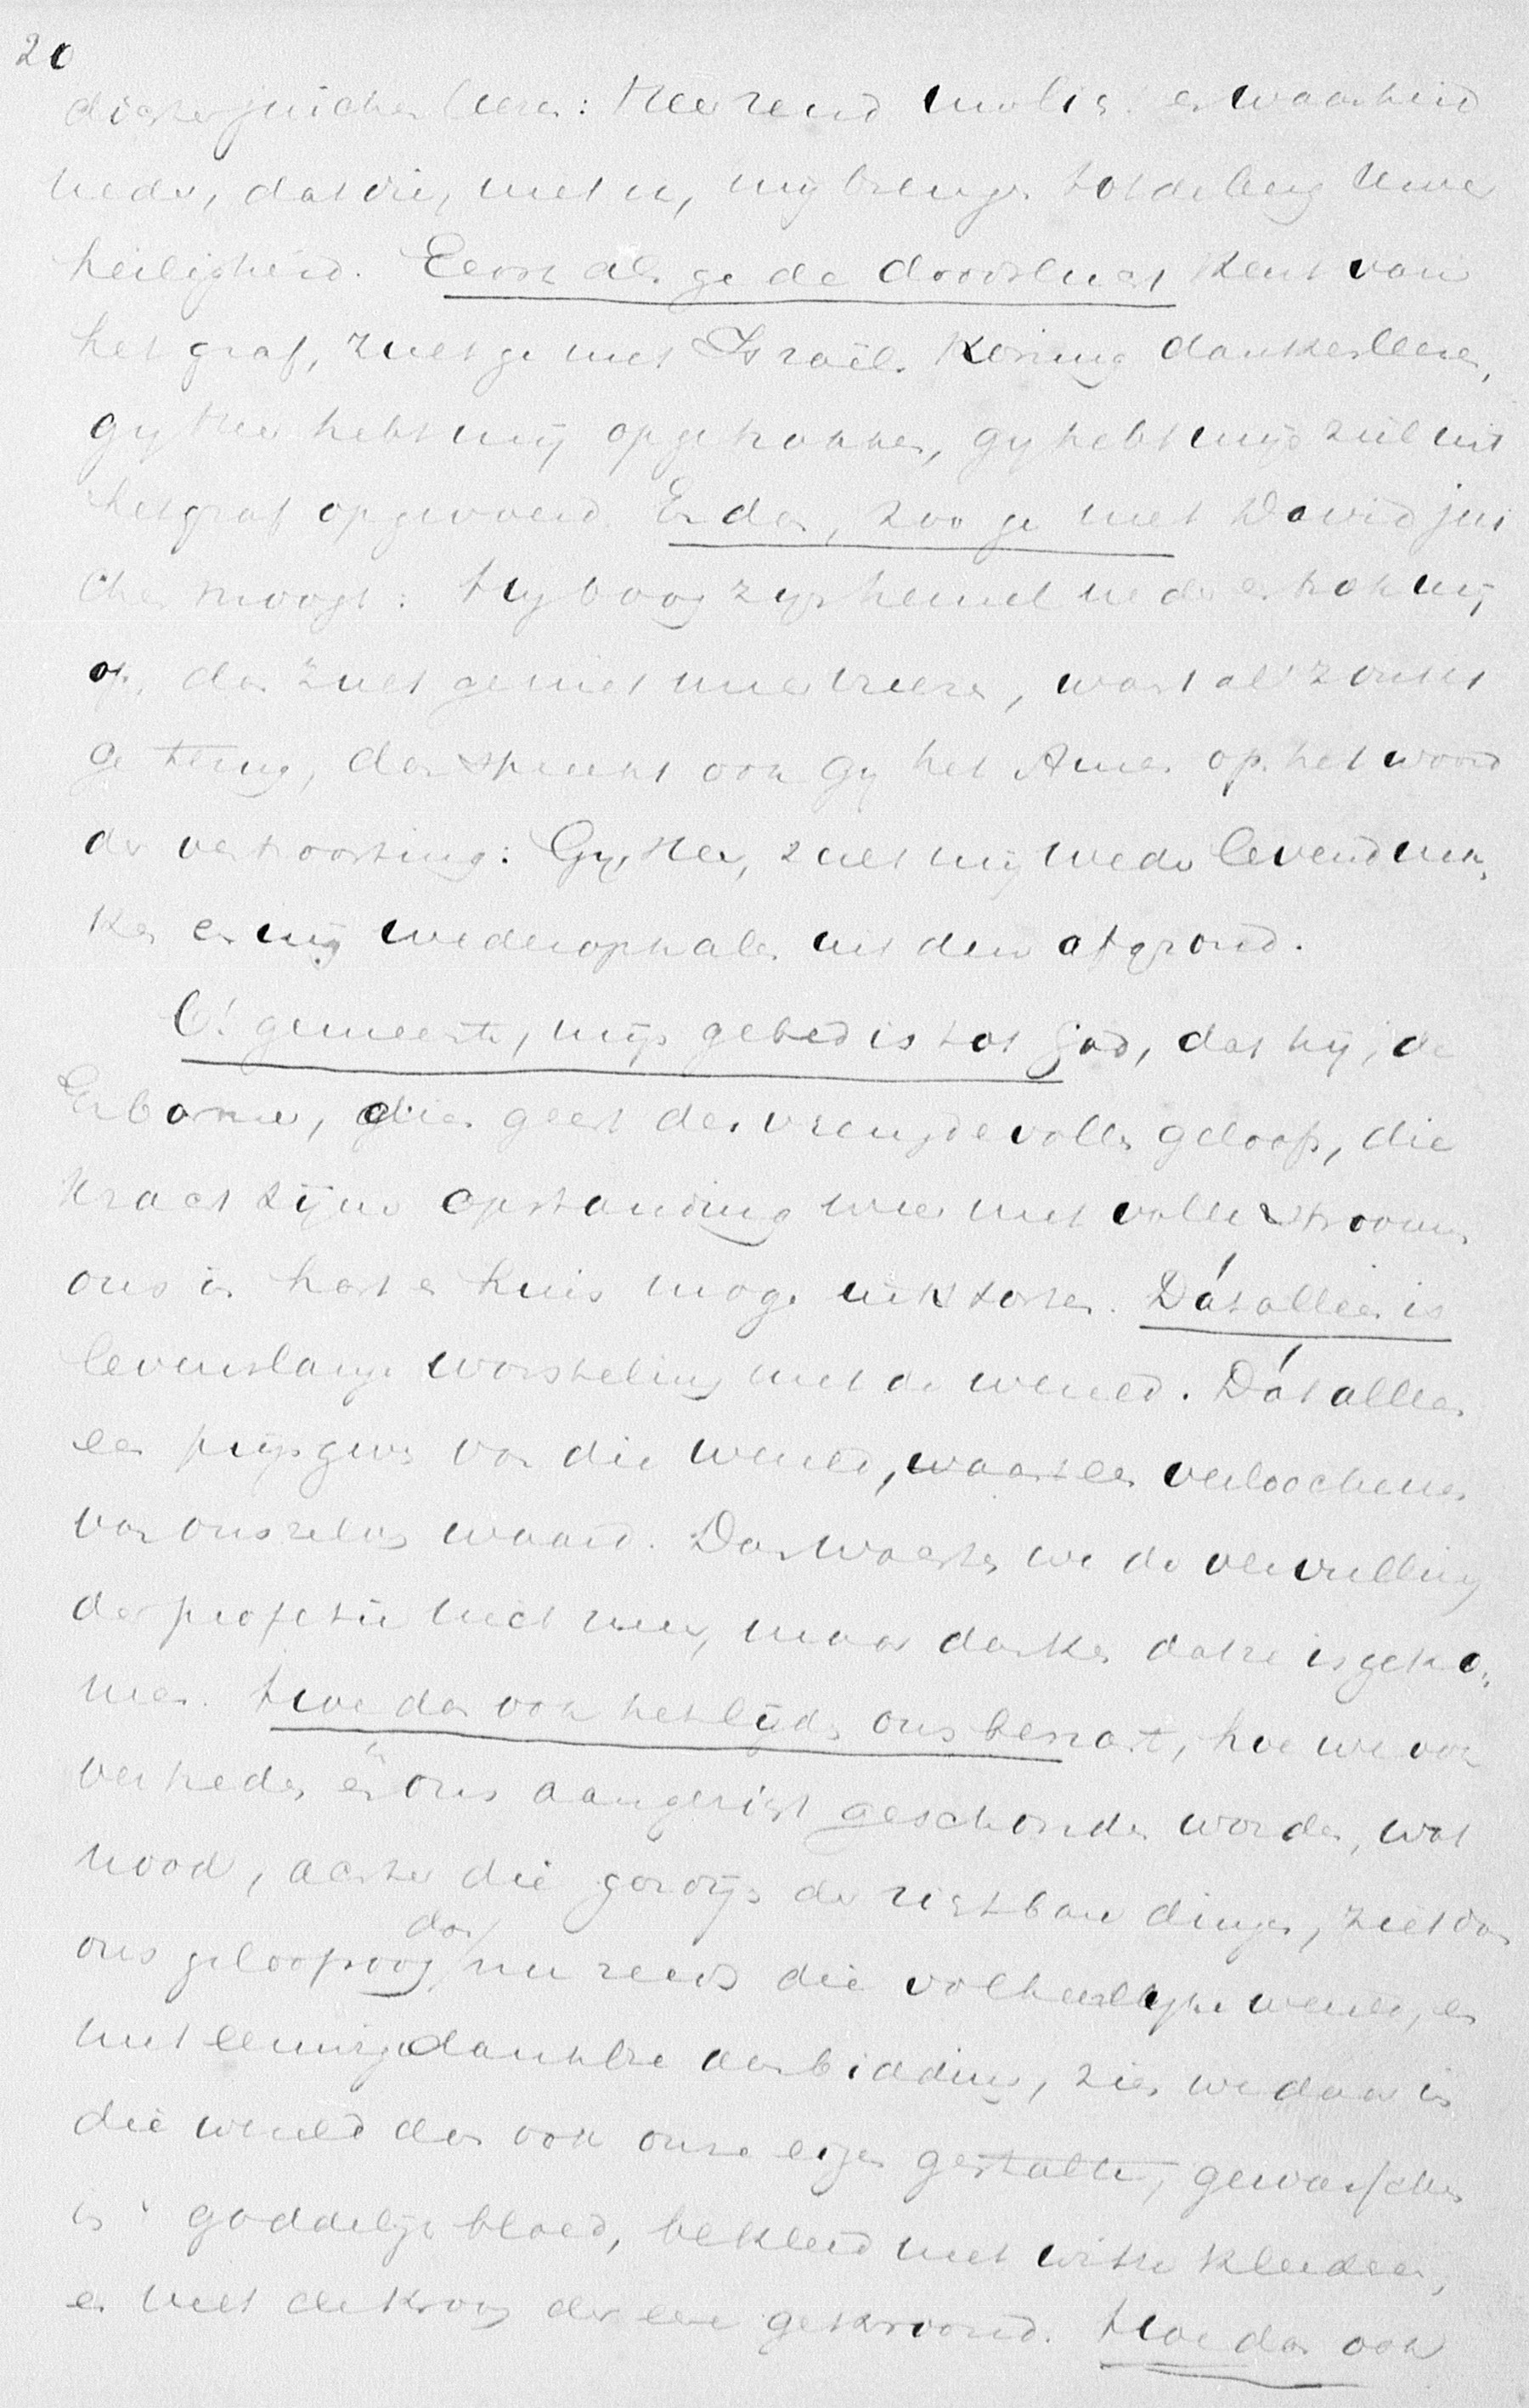 20
juichen leren: Heer zend Uw licht en waarheid
neder, dat die, met u, mij brengen tot de berg Uwer
heiligheid. Eerst als ge de doodslucht kent van
het graf, zult ge met Israëls Koning danken leeren,
gij Heer hebt mij opgetrokken, gij hebt mijn ziel uit
het graf opgevoerd En dan, zoo ge met David jui
chen moogt: Hij boog zijn hemel neder en trok mij
op, dan zult ge niet meer vreezen, want al zonkt
ge terug, dan spreekt ook gij het Amen op het woord
der vertroosting: Gij, Heer, zult mij weder levend ma,
ken en mij weder ophalen uit den afgrond.
O! gemeente, mijn gebed is tot God, dat hij, de
Erbarmer, dien geest des vreugdevollen geloofs, die
kracht zijner opstanding weer met volle stroomen
ons in hart en huis moge uitstorten. Dát alleen is
levenslange worsteling met de wereld. Dát alleen
een prijsgeven van die wereld, een verloochenen
van ons zelven waard. Dan wachten we de vervulling
der profetie niet meer, maar danken dat ze is geko,
men. Hoe dan ook het lijden ons benart, hoe we ook
vertreden en in ons aangezigt geschonden worden, wat
nood, achter die gordijn der zigtbare dingen, ziet dan
ons geloofsoog dan nu reeds die volheerlijke wereld, en
met eeuwige dankbre aanbidding, zien we dan in
die wereld dan ook onze eigen gestalte, gewasschen
in 't goddelijk bloed, bekleed met witte kleederen,
en met de kroon der eere gekroond. Hoe dan ook